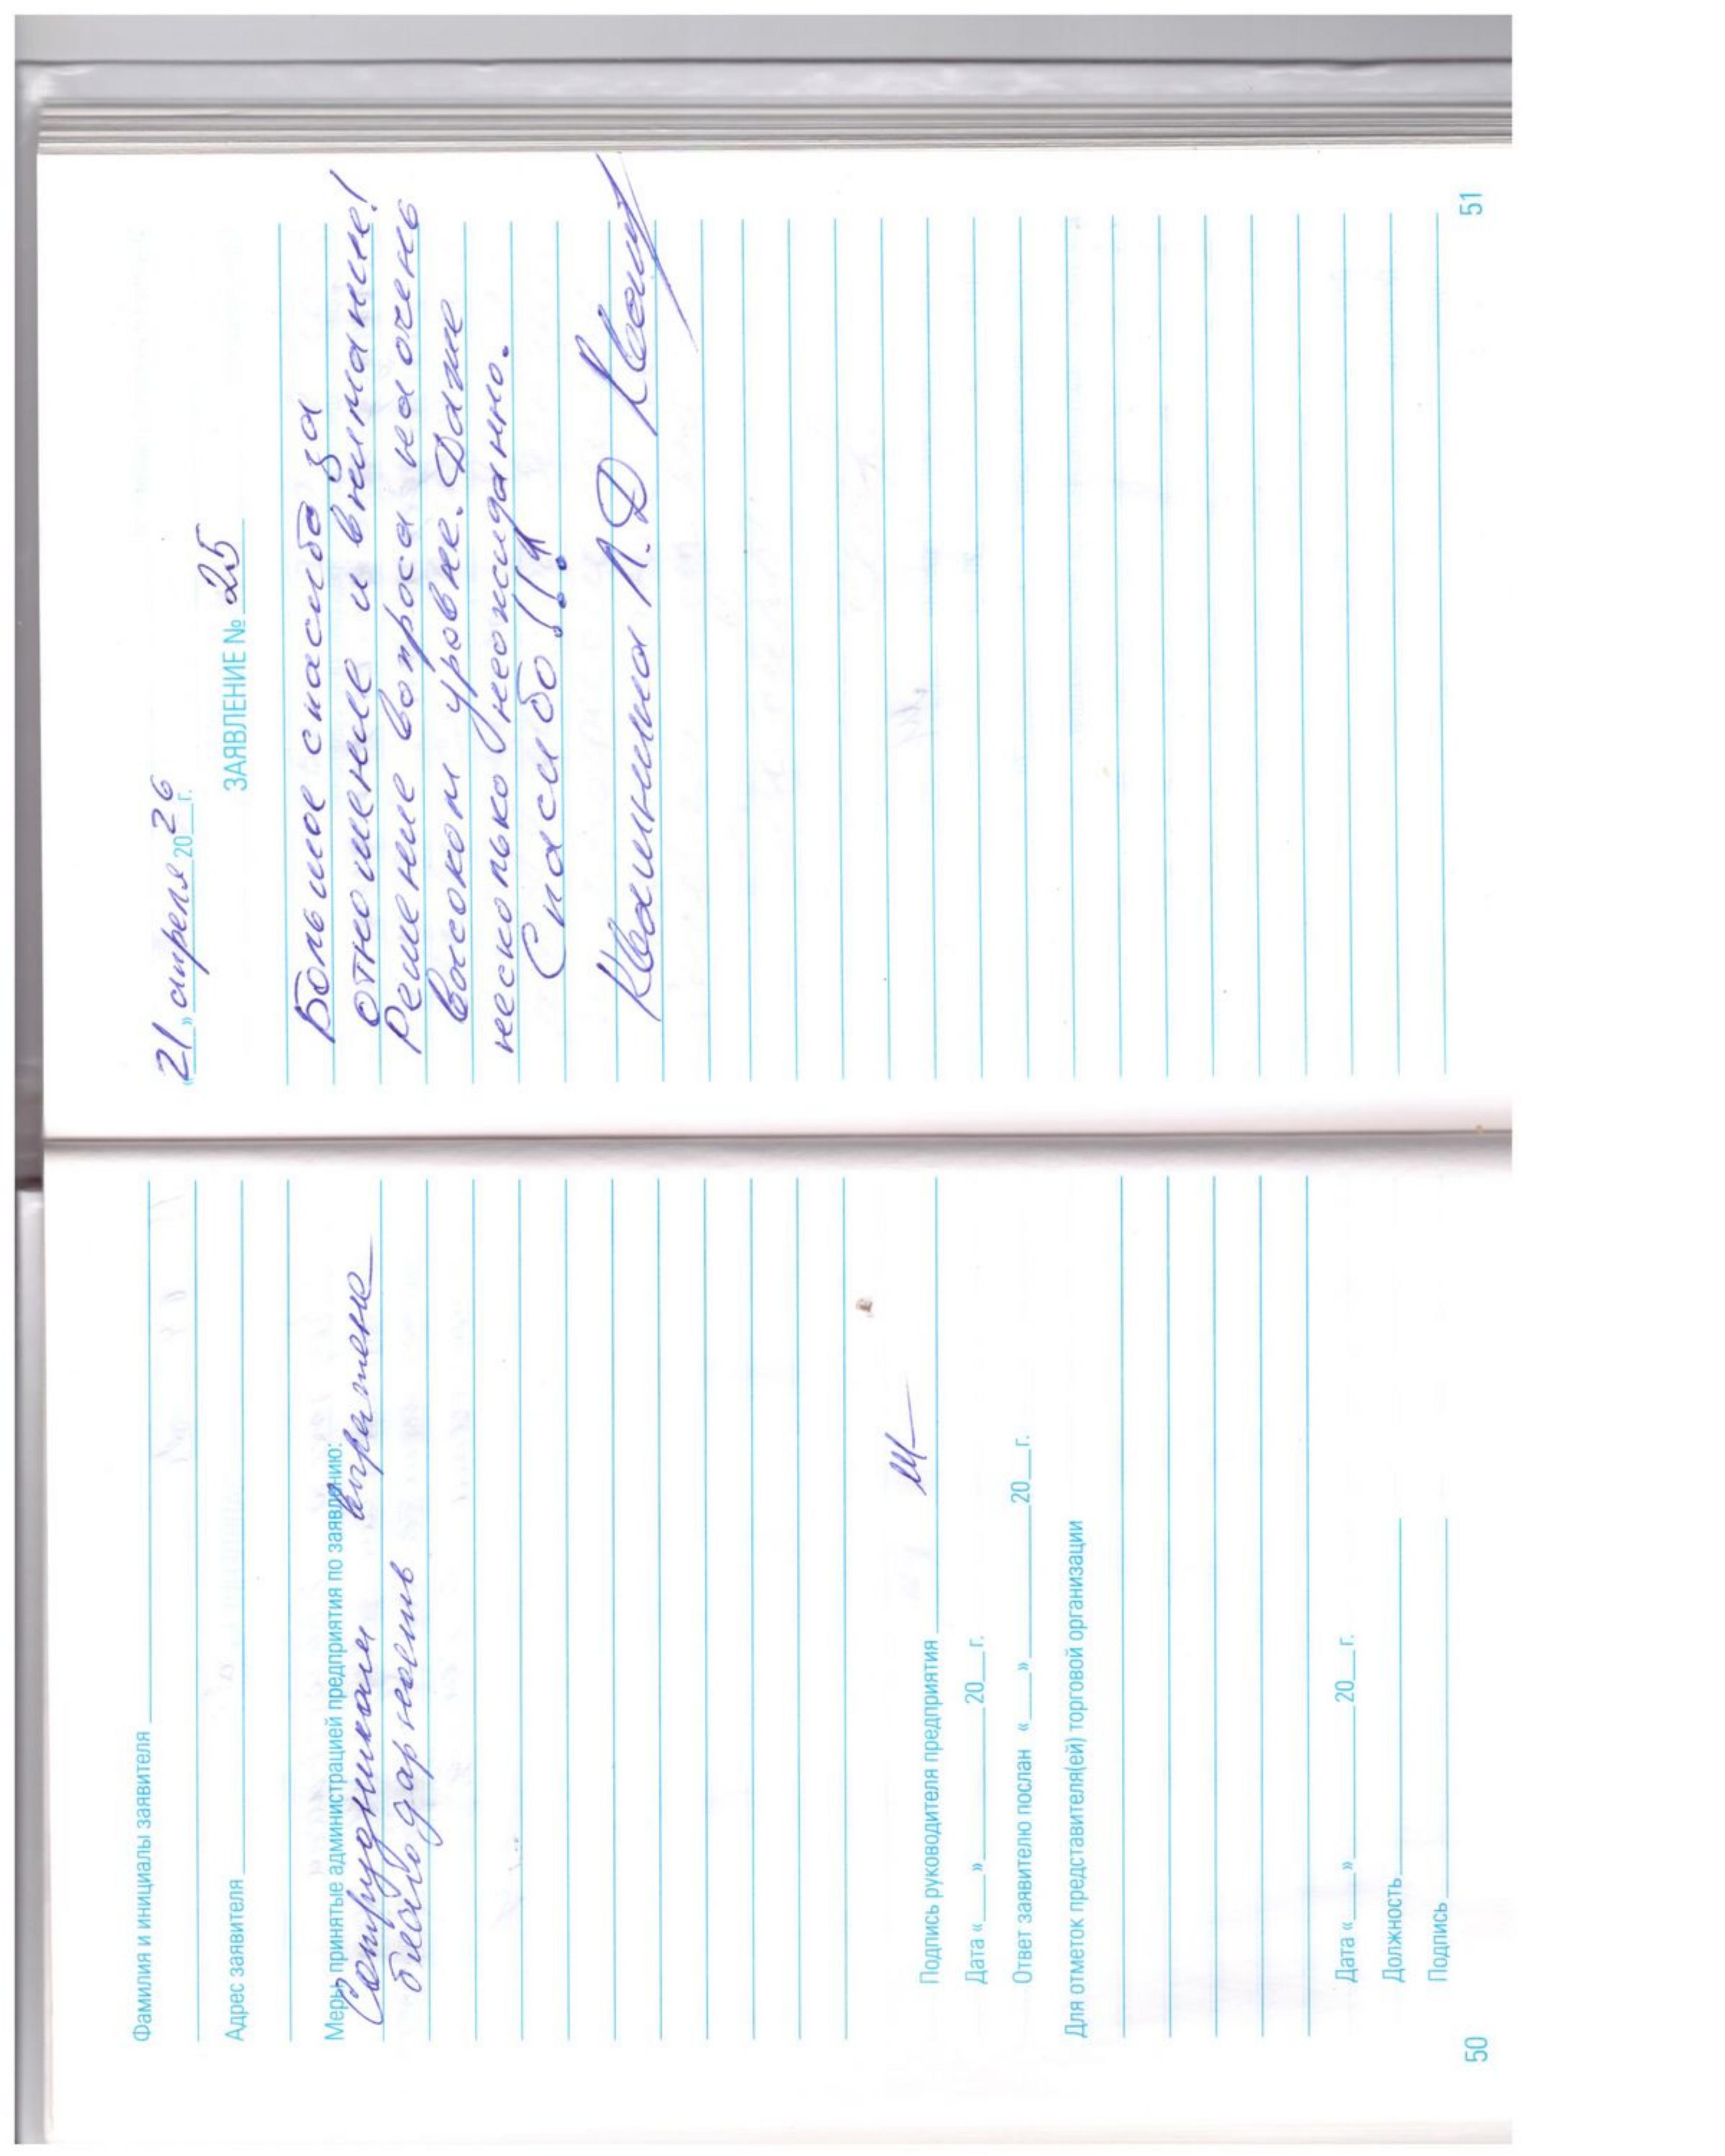 Фамилия и инициалы заявителя
Адрес заявителя
Меры принятые администрацией предприятия по заявлению:
Сотрудникам выражена
благодарность
Подпись руководителя предприятия
Дата «___»______20__г.
Ответ заявителю послан «___»______20__г.
Для отметок представителя(ей) торговой организации
Дата «___»______20__г.
Должность
Подпись
50
«21» апреля 2026 г.
ЗАЯВЛЕНИЕ № 25
Большое спасибо за
отношение и внимание!
Решение вопроса на очень
высоком уровне. Даже
несколько неожиданно.
Спасибо!!!
Квашнина Л.Д
51